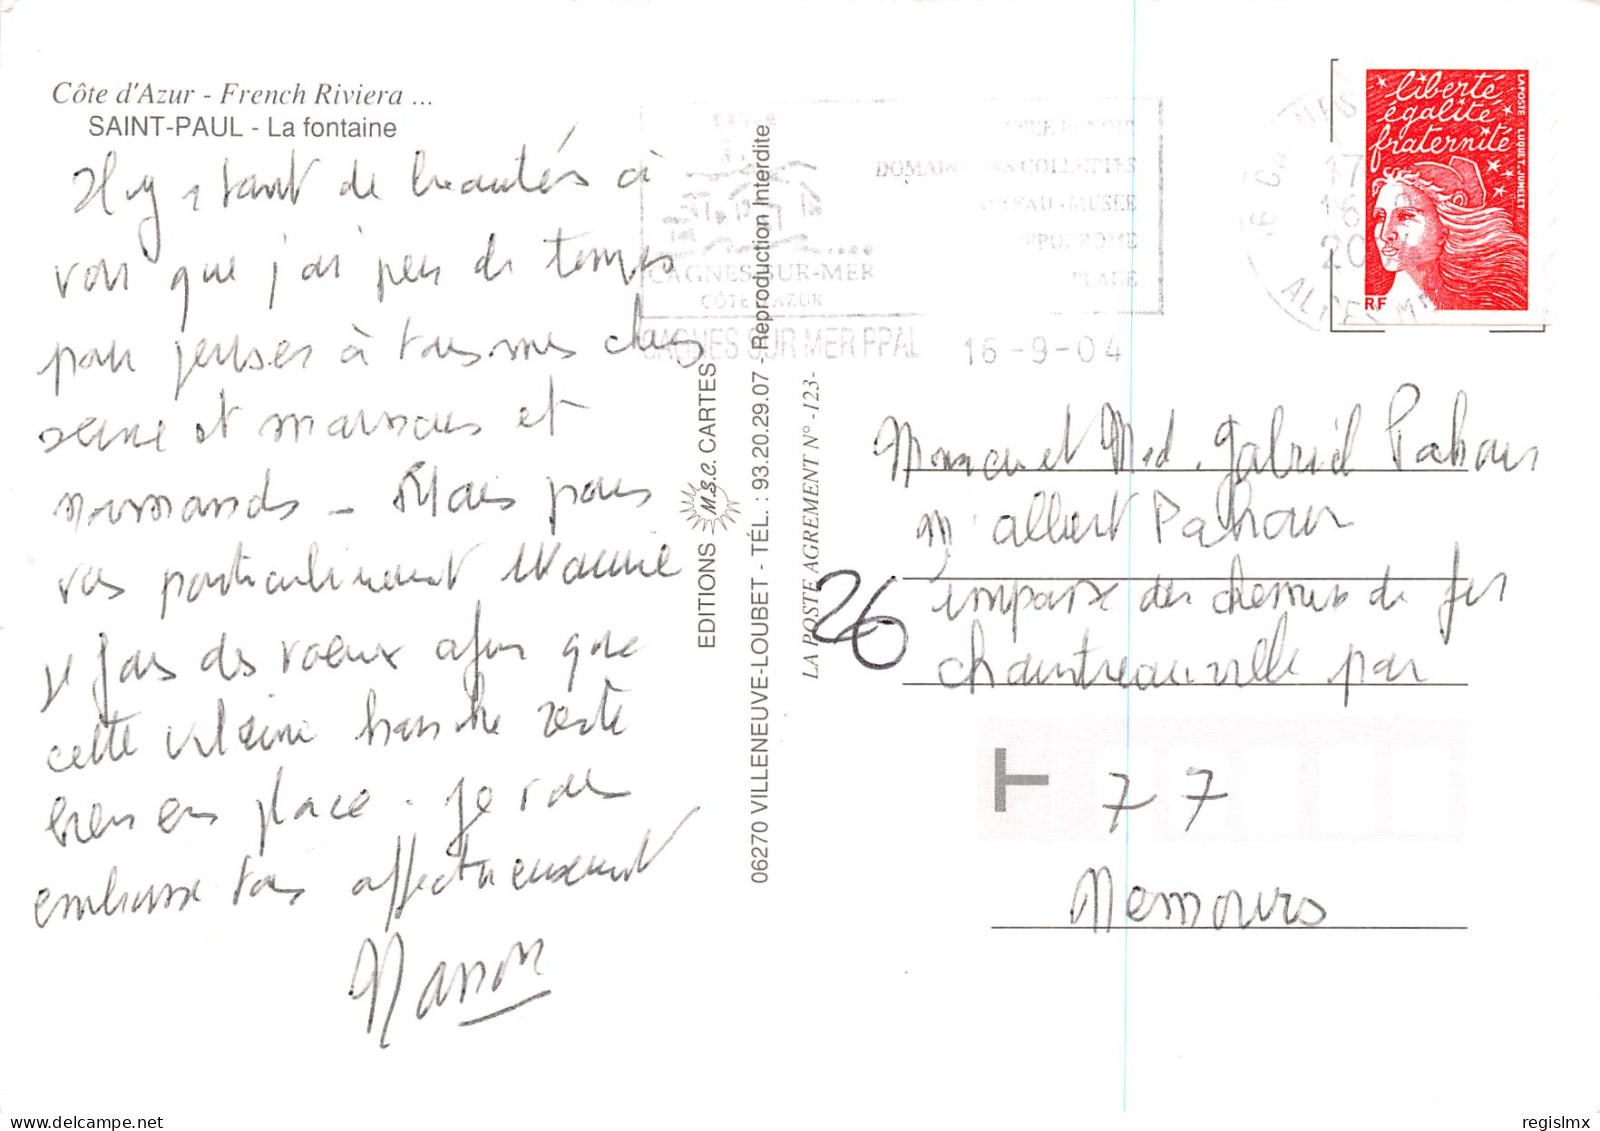 Côte d'Azur - French Riviera ...
SAINT-PAUL - La fontaine
Il y a tant de beautés à
voir que j'ai peu de temps
pour penser à tous mes chers
seine et marnais et
normands - Mais pour
vous particulièrement
je fais des vœux afin que
cette vilaine hanche reste
bien en place. Je vous
embrasse tous affectueusement
Manon
EDITIONS M.S.C. CARTES
06270 VILLENEUVE-LOUBET - TÉL. : 93.20.29.07 - Reproduction Interdite
LA POSTE AGREMENT N° -123-
DOMAINE DES COLLETTES
CHATEAU - MUSEE
HIPPODROME
PLAGE
CAGNES-SUR-MER
COTE D'AZUR
CAGNES SUR MER PPAL 16-9-04
liberté
égalité
fraternité
LA POSTE LUQUET.JUMELET
RF
17
16 9
20
ALPES MMES
Monsieur et Mad. Gabriel
Mr albert
26 impasse du chemin de fer
chaintreauville par
77
Nemours
regislmx